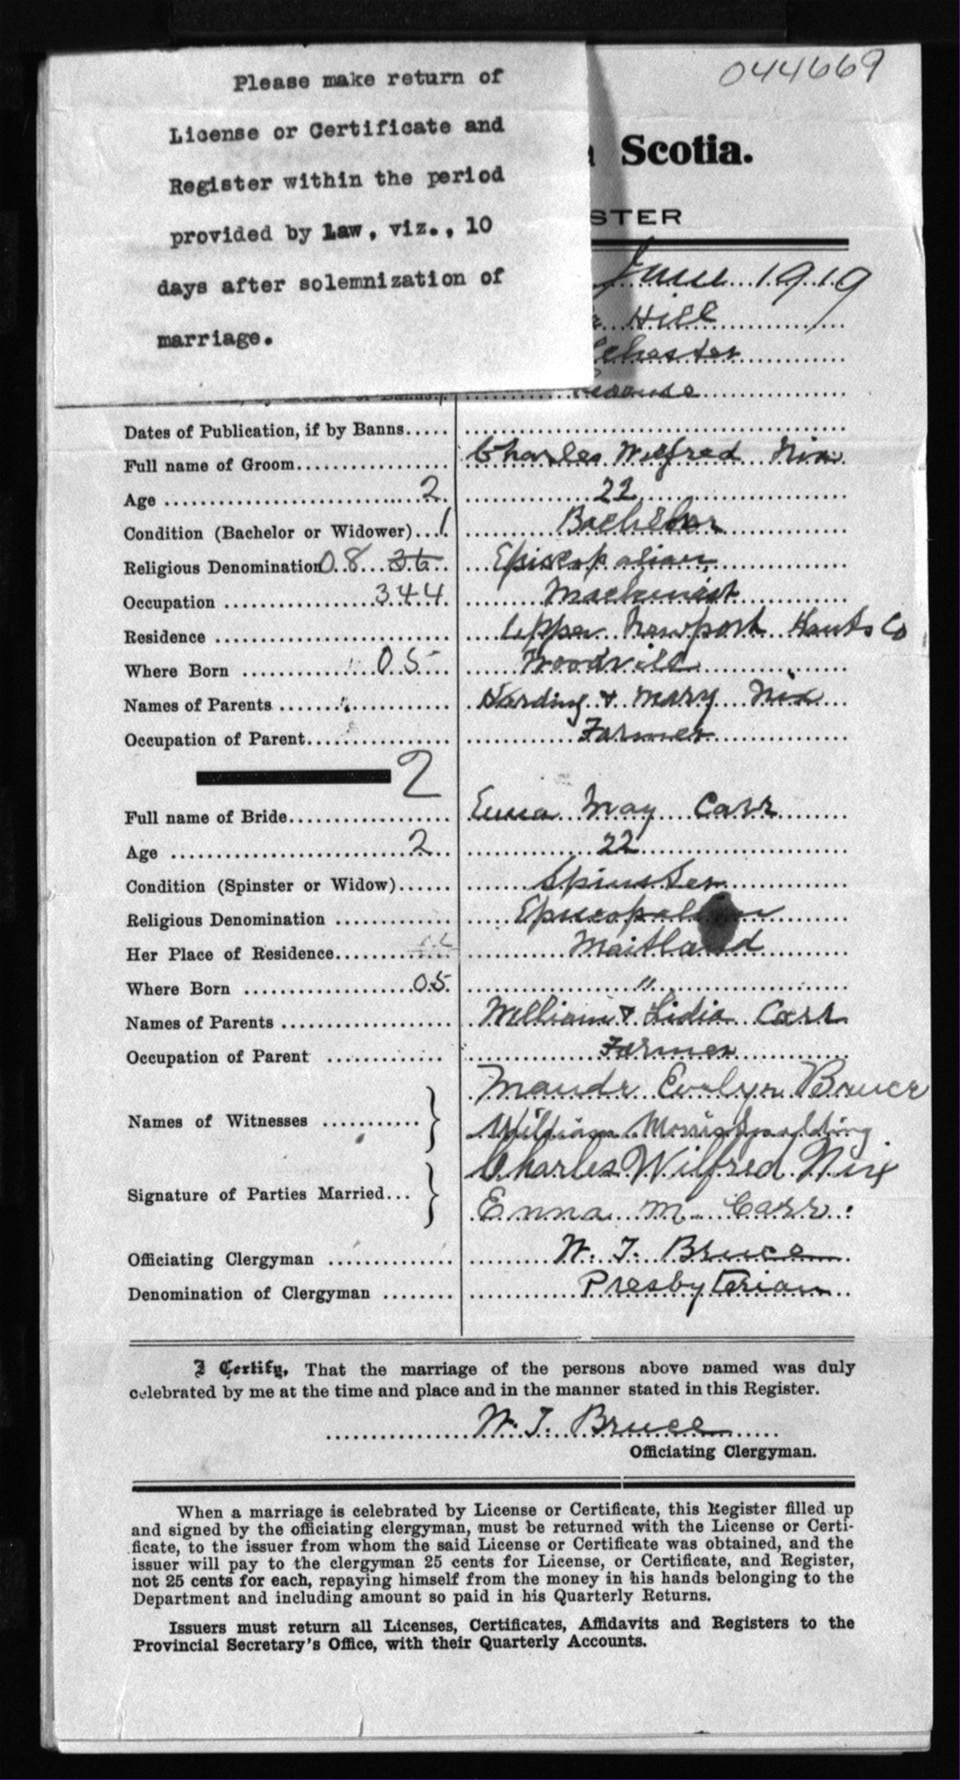 044669
Please make return of
License or Certificate and
Register within the period
provided by Law, viz., 10
days after solemnization of
marriage.
Scotia.
STER
June 1919
Hill
chester
Dates of Publication, if by Banns
Full name of Groom Charles Wilfred Nix
Age 2 22
Condition (Bachelor or Widower) 1 Bachelor
Religious Denomination 08 36 Episcopalian
Occupation 344 Machinist
Residence Upper Newport Hants Co
Where Born 05 Woodville
Names of Parents Harding & Mary Nix
Occupation of Parent Farmer
2
Full name of Bride Enna May Carr
Age 2 22
Condition (Spinster or Widow) Spinster
Religious Denomination Episcopalian
Her Place of Residence Maitland
Where Born 05 "
Names of Parents William & Lidia Carr
Occupation of Parent Farmer
Maude Evelyn Bruce
Names of Witnesses
William Morris Spalding
Charles Wilfred Nix
Signature of Parties Married
Enna M. Carr.
Officiating Clergyman W. T. Bruce
Denomination of Clergyman Presbyterian
I Certify, That the marriage of the persons above named was duly
celebrated by me at the time and place and in the manner stated in this Register.
W. T. Bruce
Officiating Clergyman.
When a marriage is celebrated by License or Certificate, this Register filled up
and signed by the officiating clergyman, must be returned with the License or Certi-
ficate, to the issuer from whom the said License or Certificate was obtained, and the
issuer will pay to the clergyman 25 cents for License, or Certificate, and Register,
not 25 cents for each, repaying himself from the money in his hands belonging to the
Department and including amount so paid in his Quarterly Returns.
Issuers must return all Licenses, Certificates, Affidavits and Registers to the
Provincial Secretary's Office, with their Quarterly Accounts.